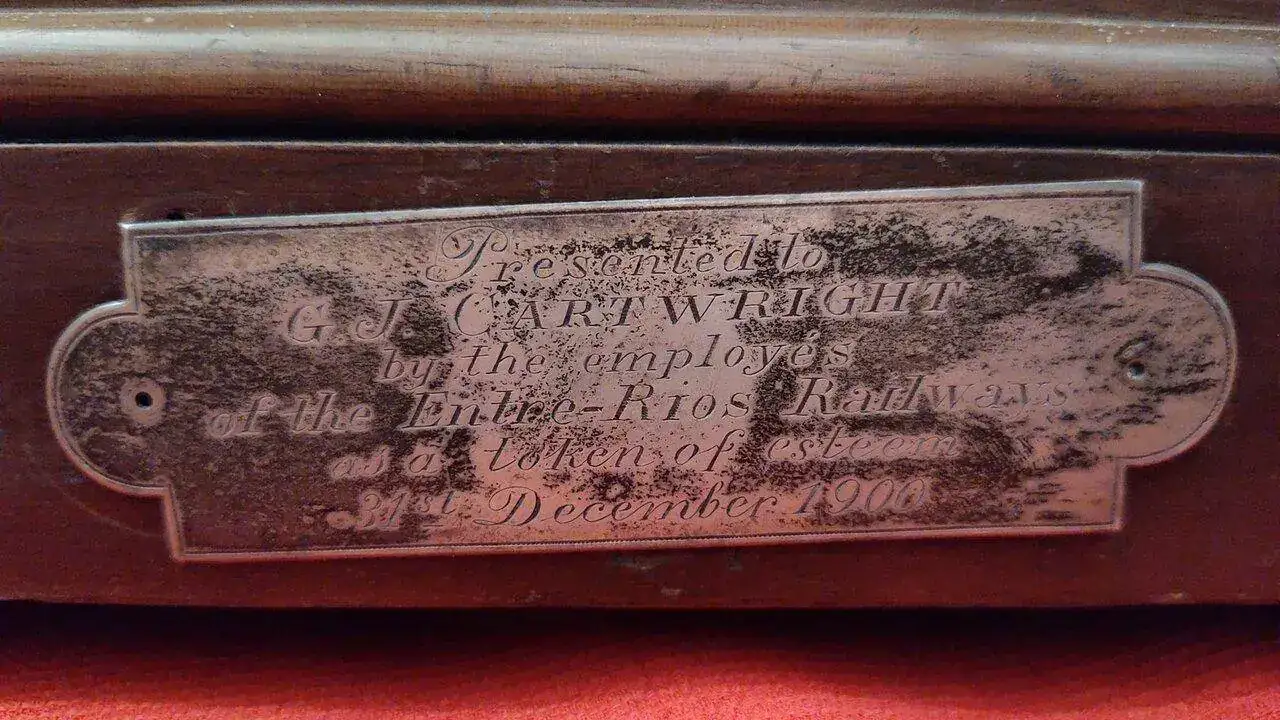 Presented to
G. J. CARTWRIGHT
by the employés
of the Entre-Rios Railways
as a token of esteem
31st December 1900